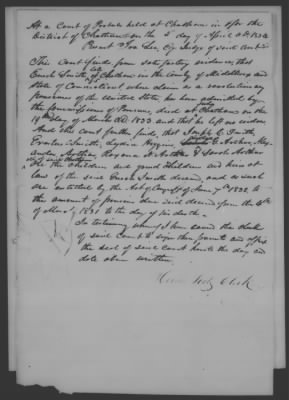 At a Court of Probate held at Chatham in & for the
District of Chatham on the 2d day of April AD 1834
Present Esqr Judge of said Court
This Court finds from satisfactory evidence, that
Enoch Smith, late of Chatham in the County of Middlesex and
State of Connecticut whose claim as a revolutionary
pensioner of the United States has been admitted by
the Commissioner of Pensions, died at said Chatham on the
19th day of March AD 1833 and that he left no widow
And this Court further finds, that Joseph C. Smith,
Erastus Smith, Lydia Higgins, Arthur, Alex-
ander Arthur, Roxana Arthur & Sarah Arthur
are the children and grand children and heirs at
law of the said Enoch Smith deceased, and as such
are entitled by the Act of Congress of June 7th 1832 to
the amount of pension due said deceased from the 4th
of March 1831 to the day of his death.
In testimony whereof I have caused the clerk
of said court to sign these presents and affix
the seal of said Court hereto the day and
date above written
Clerk